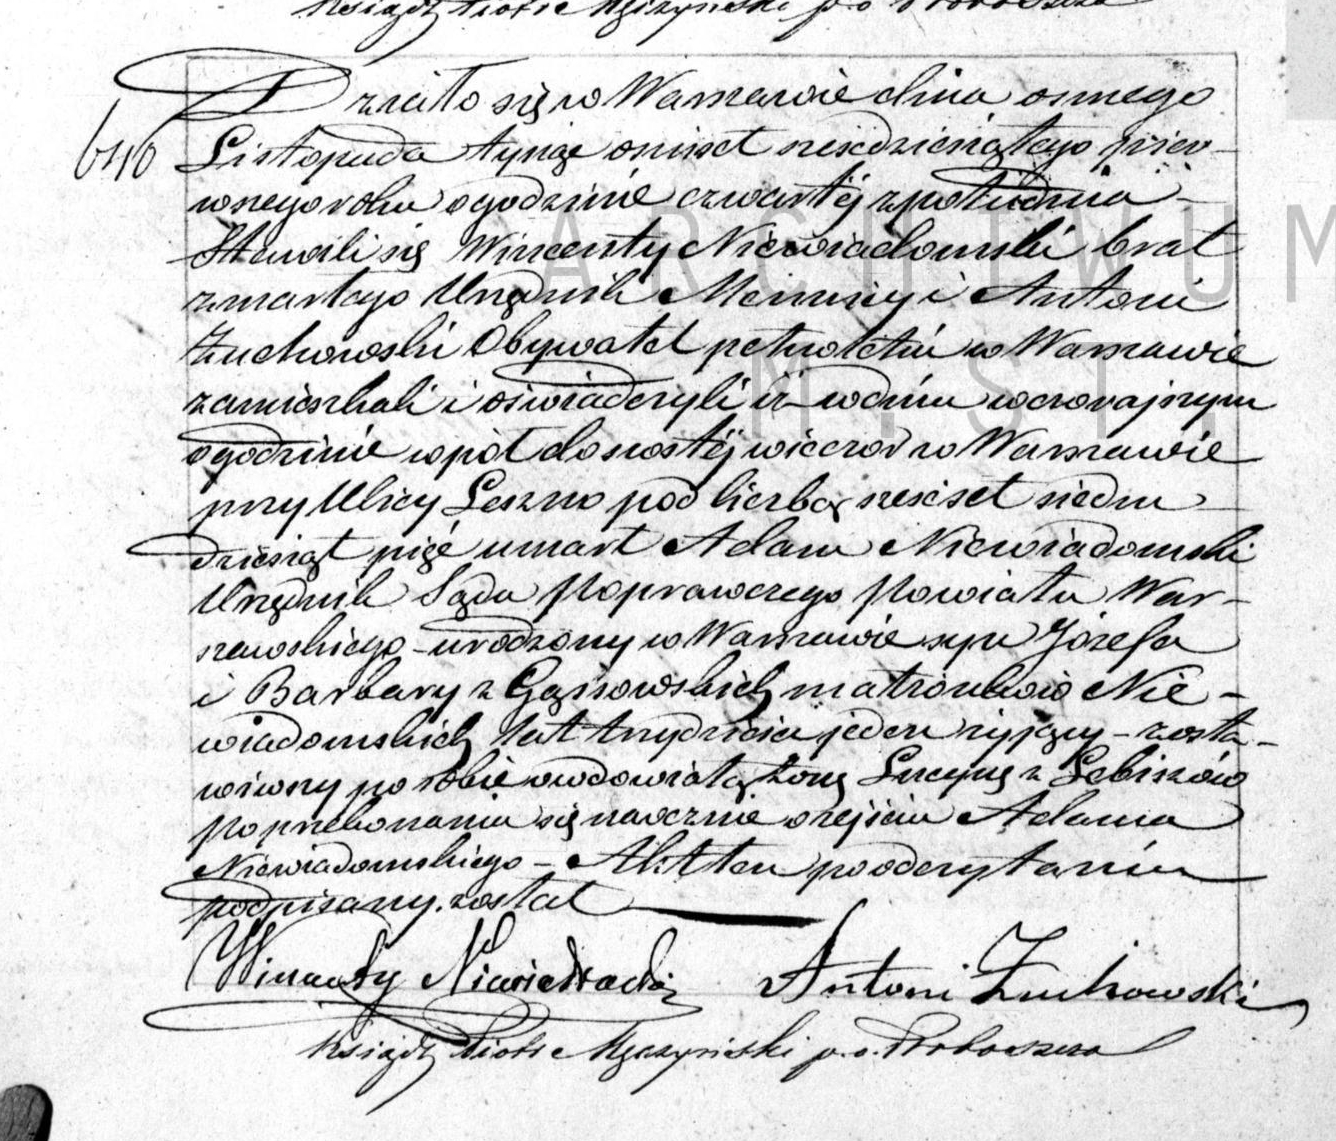 Książdz Piotr Mączyński p.o. Proboszcza
640
Działo się w Warszawie dnia osmego
Listopada tysiąc ośmset sześcdziesiątego pier-
wszego roku o godzinie czwartéj z południa –
Stawili się Wincenty Niewiadomski brat
zmarłego Urzędnik Mennicy i Antoni
Żuchowski Obywatel pełnoletni w Warszawie
zamieszkali i oświadczyli iż w dniu wczorajszym
o godzinie wpół do szóstéj wieczór w Warszawie
przy Ulicy Leszno pod liczbą sześćset siedm
dziesiąt pięć umarł Adam Niewiadomski
Urzędnik Sądu Poprawczego Powiatu War-
szewskiego – urodzony w Warszawie syn Józefa
i Barbary z Gąsiowskich małżonków Nie-
wiadomskich lat trzydzieści jeden żyjący – zosta-
wiwszy po sobie owdowiałą żonę Lucynę z Lebiszów
Po przekonaniu się naocznie o zejściu Adama
Niewiadomskiego – Akt ten po odczytaniu
podpisany został
Wincenty Niewiadomski Antoni Żuchowski
Książdz Piotr Mączyński p.o. Proboszcza
ARCHIWUM
M. ST.